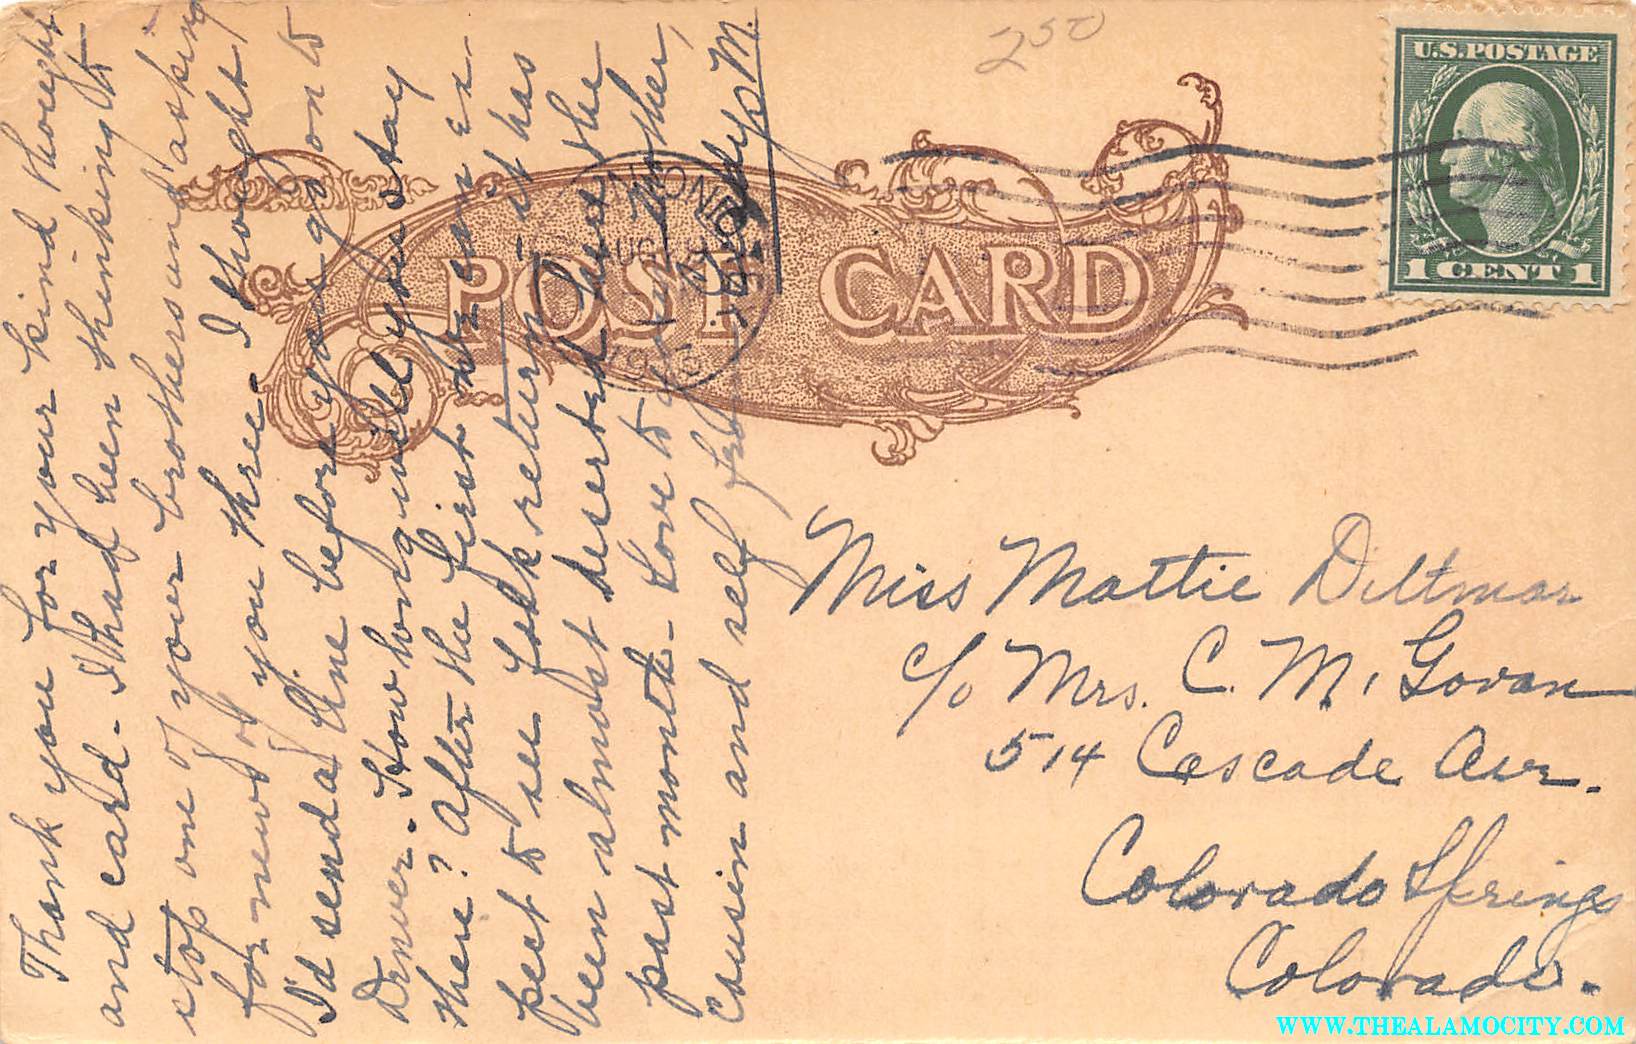 Thank you for your kind thought
and card - I had been thinking to
stop one of your brothers and asking
for news of you three - I thought
I'd send a line before you go on to
Denver - How long will you stay
there? After the first we can ex-
pect to see folk return - it has
been almost deserted here the
past month - Love to Mother,
cousin and self from
Gladys M.
250
U.S. POSTAGE
1 CENT 1
POST CARD
ANTONIO
AUG
1913
Miss Mattie Dittmar
c/o Mrs. C. M. Govan
514 Cascade Ave.
Colorado Springs
Colorado.
WWW.THEALAMOCITY.COM